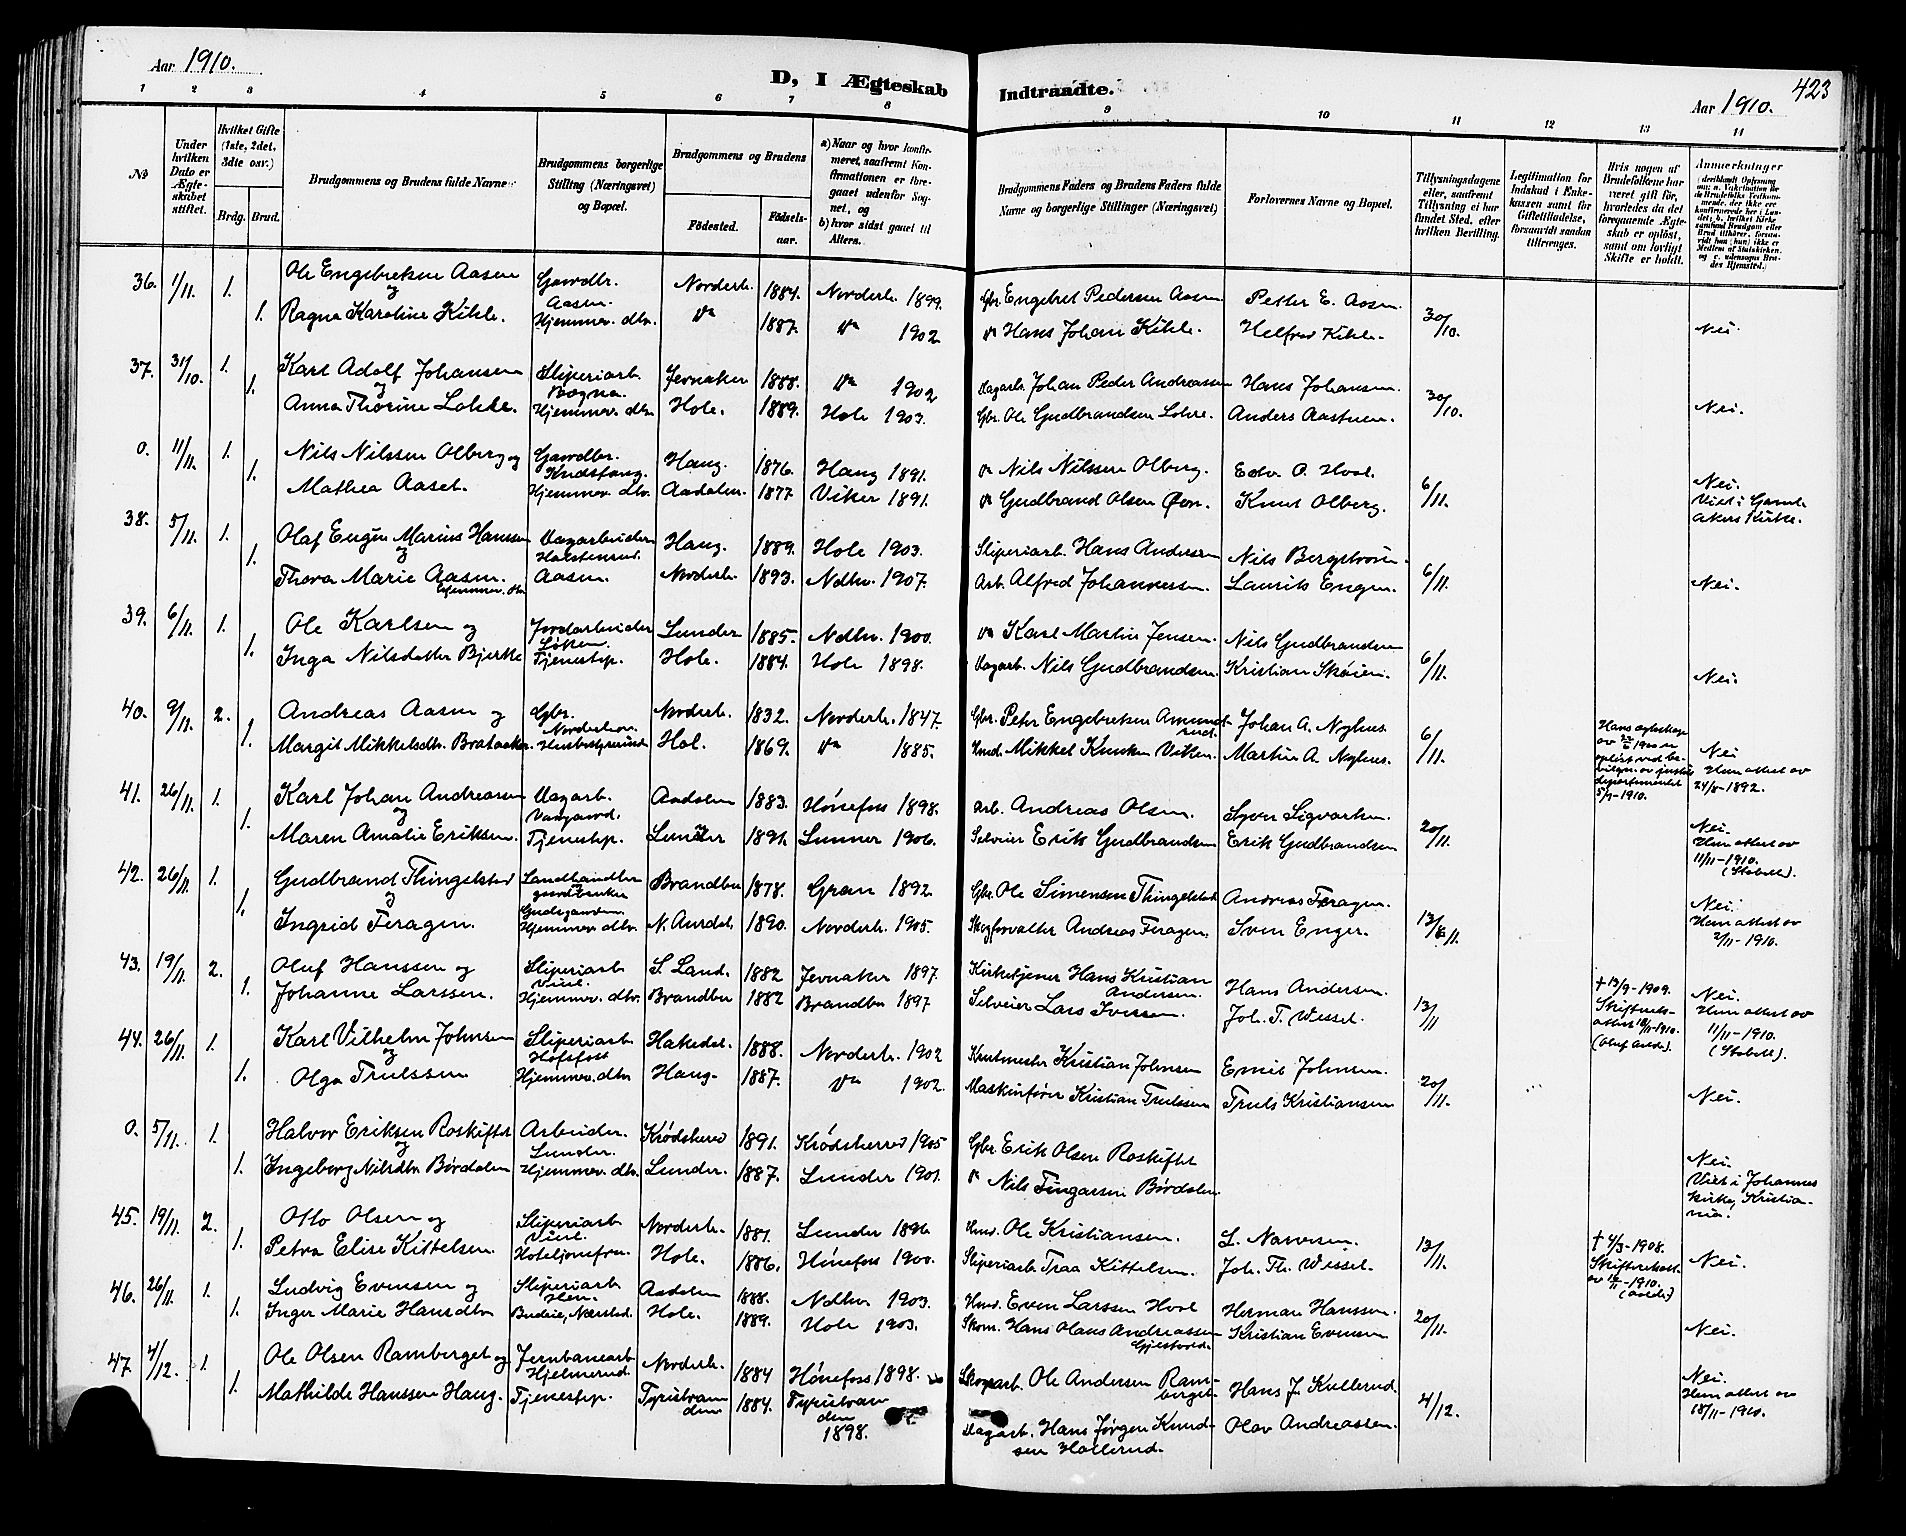 Aar 1910.
D, I Ægteskab
Indtraadte.
Aar 1910.
423
1 2 3 4 5 6 7 8 9 10 11 12 13 14
No
Under hvilken Dato er Ægteskabet stiftet.
Hvilket Gifte (1ste, 2det, 3dte osv.)
Brdg. Brud.
Brudgommens og Brudens fulde Navne
Brudgommens borgerlige Stilling (Næringsvei) og Bopæl.
Brudgommens og Brudens
Fødested.
Fødselsaar.
a) Naar og hvor konfirmeret, saafremt Konfirmationen er foregaaet udenfor Sognet, og
b) hvor sidst gaaet til Alters.
Brudgommens Faders og Brudens Faders fulde Navne og borgerlige Stillinger (Næringsvei)
Forlovernes Navne og Bopæl.
Tillysningsdagene eller, saafremt Tillysning ei har fundet Sted, efter hvilken Bevilling.
Legitimation for Indskud i Enkekassen samt for Giftetilladelse, forsaavidt saadan tiltrænges.
Hvis nogen af Brudefolkene har været gift før, hvorledes da det foregaaende Ægteskab er opløst, samt om lovligt Skifte er holdt.
Anmærkninger
36. 1/11. 1. Ole Engebretsen Aasen Gaardbr. Norderh. 1884. Norderh. 1899. Gbr. Engebret Pedersen Aasen Petter E. Aasen 30/10.
og Aasen.
1. Ragna Karoline Kihle. Hjemmev. dtr. do 1887. do 1902 do Hans Johan Kihle. Helfred Kihle. Nei.
37. 31/10. 1. Karl Adolf Johansen Sliperiarb. Jevnaker 1888. do 1902 Dagarb. Johan Peder Andreassen Hans Johansen. 30/10.
og Bogna.
1. Anna Thorine Lohre. Hjemmev. dtr. Hole. 1889. Hole 1903. Gbr. Ole Gudbrandsen Lohre. Anders Aastuen. Nei.
0. 11/11. 1. Nils Nilssen Olberg og Gaardbr. Haug. 1876. Haug 1891. do Nils Nilssen Olberg. Edv. O. Hval. 6/11.
1. Mathea Aaset. Hjemmev. dtr. Aadalen. 1877. Viker 1891. do Gudbrand Olsen Knut Olberg. Nei.
Viet i Gamle Akers Kirke.
38. 5/11. 1. Olaf Eugen Marius Hanssen Dagarbeider Haug. 1889. Hole 1903. Sliperiarb. Hans Andersen Nils Bergstrøm. 6/11.
og
1. Thora Marie Aasen. Hjemmev. dtr. Aasen. Norderh. 1893. Ndhv. 1907. Arb. Alfred Johannessen. Laurits Engen. Nei.
39. 6/11. 1. Ole Karlsen og Jordarbeider Lunder 1885. Ndhv. 1900. do Karl Martin Jensen. Nils Gudbrandsen 6/11.
Løken.
1. Inga Nilsdatter Bjerke Tjenestep. Hole. 1884. Hole 1898. Dagarb. Nils Gudbrandsen. Kristian Skøien. Nei.
40. 9/11. 2. Andreas Aasen og Gbr. Norderh. 1832. Norderh. 1847. Gbr. Peter Engebretsen Amundrud. Johan A. Nyhus. 6/11. Hans egteskap av 22/6 1900 er opløst ved bevilgn. av justisdepartementet 5/9-1910.
Norderhov.
1. Margit Mikkelsdtr. Brataaker. Husbestyrerinde Hol. 1869. do 1885. Hmd. Mikkel Knutsen Viken. Martin A. Nyhus. Nei
Hum attest av 24/8-1892.
41. 26/11. 1. Karl Johan Andreasen Dagarb. Aadalen 1883. Hønefoss 1898. Arb. Andreas Olsen. Syver Sigvartsen. 20/11.
1. Maren Amalie Eriksen. Tjenestep. Lunner 1891. Lunner 1906. Selveier Erik Gudbrandsen Erik Gudbrandsen Nei.
Hum attest av 11/11-1910. (Stabell).
42. 26/11. 1. Gudbrand Thingelstad Landhandler Brandbu 1878. Gran 1892. Gbr. Ole Simensen Thingelstad Andreas Feragen. 13/11.
og gaardbruker
1. Ingrid Feragen. Hjemmev. dtr. N. Aurdal. 1890. Norderh. 1905. Skogforvalter Andreas Feragen. Sven Enger. Nei.
Hum attest av 2/11-1910.
43. 19/11. 2. Oluf Hanssen og Sliperiarb. S. Land. 1882 Jevnaker 1897. Kirketjener Hans Kristian Andersen. Hans Andersen. 13/11 † 13/9-1909. Skifteretsattest 18/11-1910. (Oluf Aalde).
1. Johanne Larssen. Hjemmev. dtr. Brandbu 1882 Brandbu 1897 Selveier Lars Iverssen. Joh. T. Wessel. Nei.
Hum attest av 11/11-1910. (Stabell).
44. 26/11. 1. Karl Vilhelm Johnsen Sliperiarb. Hakedal. 1888. Norderh. 1902 Krutmester Kristian Johnsen Emil Johnsen. 20/11.
og Hofsfoss
1. Olga Trulssen Hjemmev. dtr. Haug. 1887. do 1902. Maskinfører Kristian Trulssen Truls Kristiansen Nei.
0. 5/11. 1. Halvor Eriksen Roskiftet Arbeider. Krødsherred 1891. Krødsherred 1905 Gbr. Erik Olsen Roskiftet
og Lunder.
1. Ingeborg Nilsdtr. Børdalen Hjemmev. dtr. Lunder. 1887. Lunder 1901. do Nils Fingarsen Børdalen Nei.
Viet i Johannes kirke, Kristiania.
45. 19/11. 2. Otto Olsen og Sliperiarb. Norderh. 1881. Lunder 1896. Hmd. Ole Kristiansen. L. Narvesen. 13/11. † 4/3-1908. Skifteretsatt. av 16/11-1910. (Aalde)
1. Petra Elise Kittelsen. Hoteljomfru. Hole. 1886. Hønefoss 1900. Sliperiarb. Traa Kittelsen. Joh. Th. Wessel. Nei.
46. 26/11. 1. Ludvig Evensen og Sliperiarb. Aadalen 1888. Ndhv. 1903. Hmd. Even Larssen Hval Herman Hanssen. 20/11.
Hen.
1. Inger Marie Hansdtr. Budeie, Nærstad. Hole. 1889. Hole 1903. Skom. Hans Olaus Andreassen Gjelsvold. Kristian Evensen Nei.
47. 4/12. 1. Ole Olsen Ramberget og Jernbanearb. Norderh. 1884 Hønefoss 1898. Skogsarb. Ole Andersen Ramberget. Hans J. Kullerud. 4/12.
Hjelmerud.
1. Mathilde Hanssen Haug. Tjenestep. Tyristranden 1884. Tyristranden 1898. Dagarb. Hans Jørgen Knudsen Hallerud. Olav Andreassen. Nei.
Hum attest av 18/11-1910.